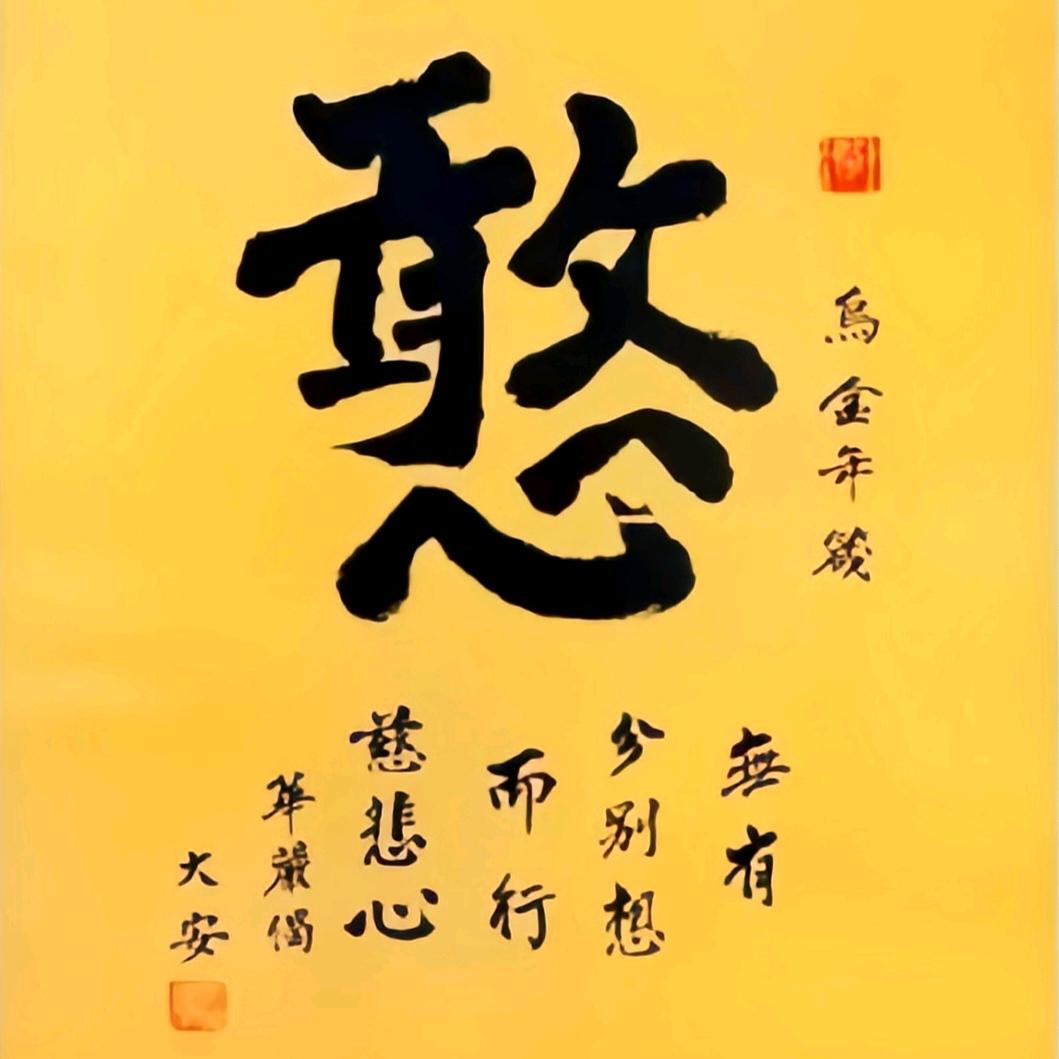 烏金年箴
憨
無有
分別想
而行
慈悲心
華嚴偈
大安